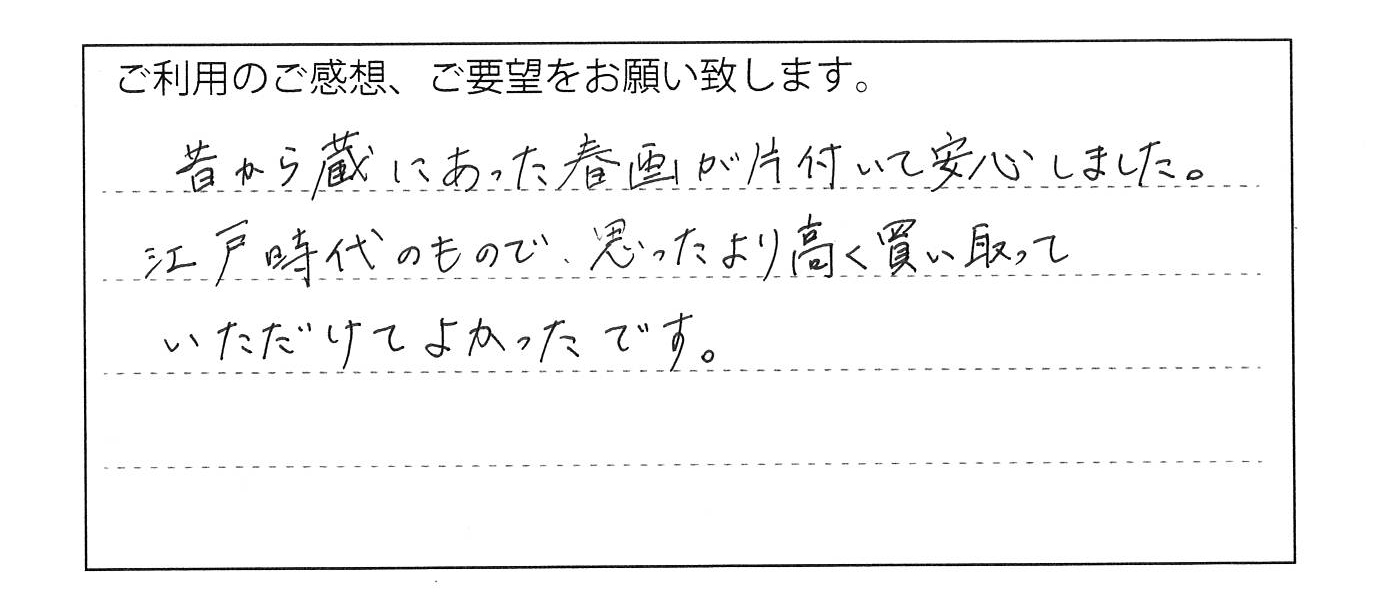 ご利用のご感想、ご要望をお願い致します。
昔から蔵にあった春画が片付いて安心しました。
江戸時代のもので、思ったより高く買い取って
いただけてよかったです。